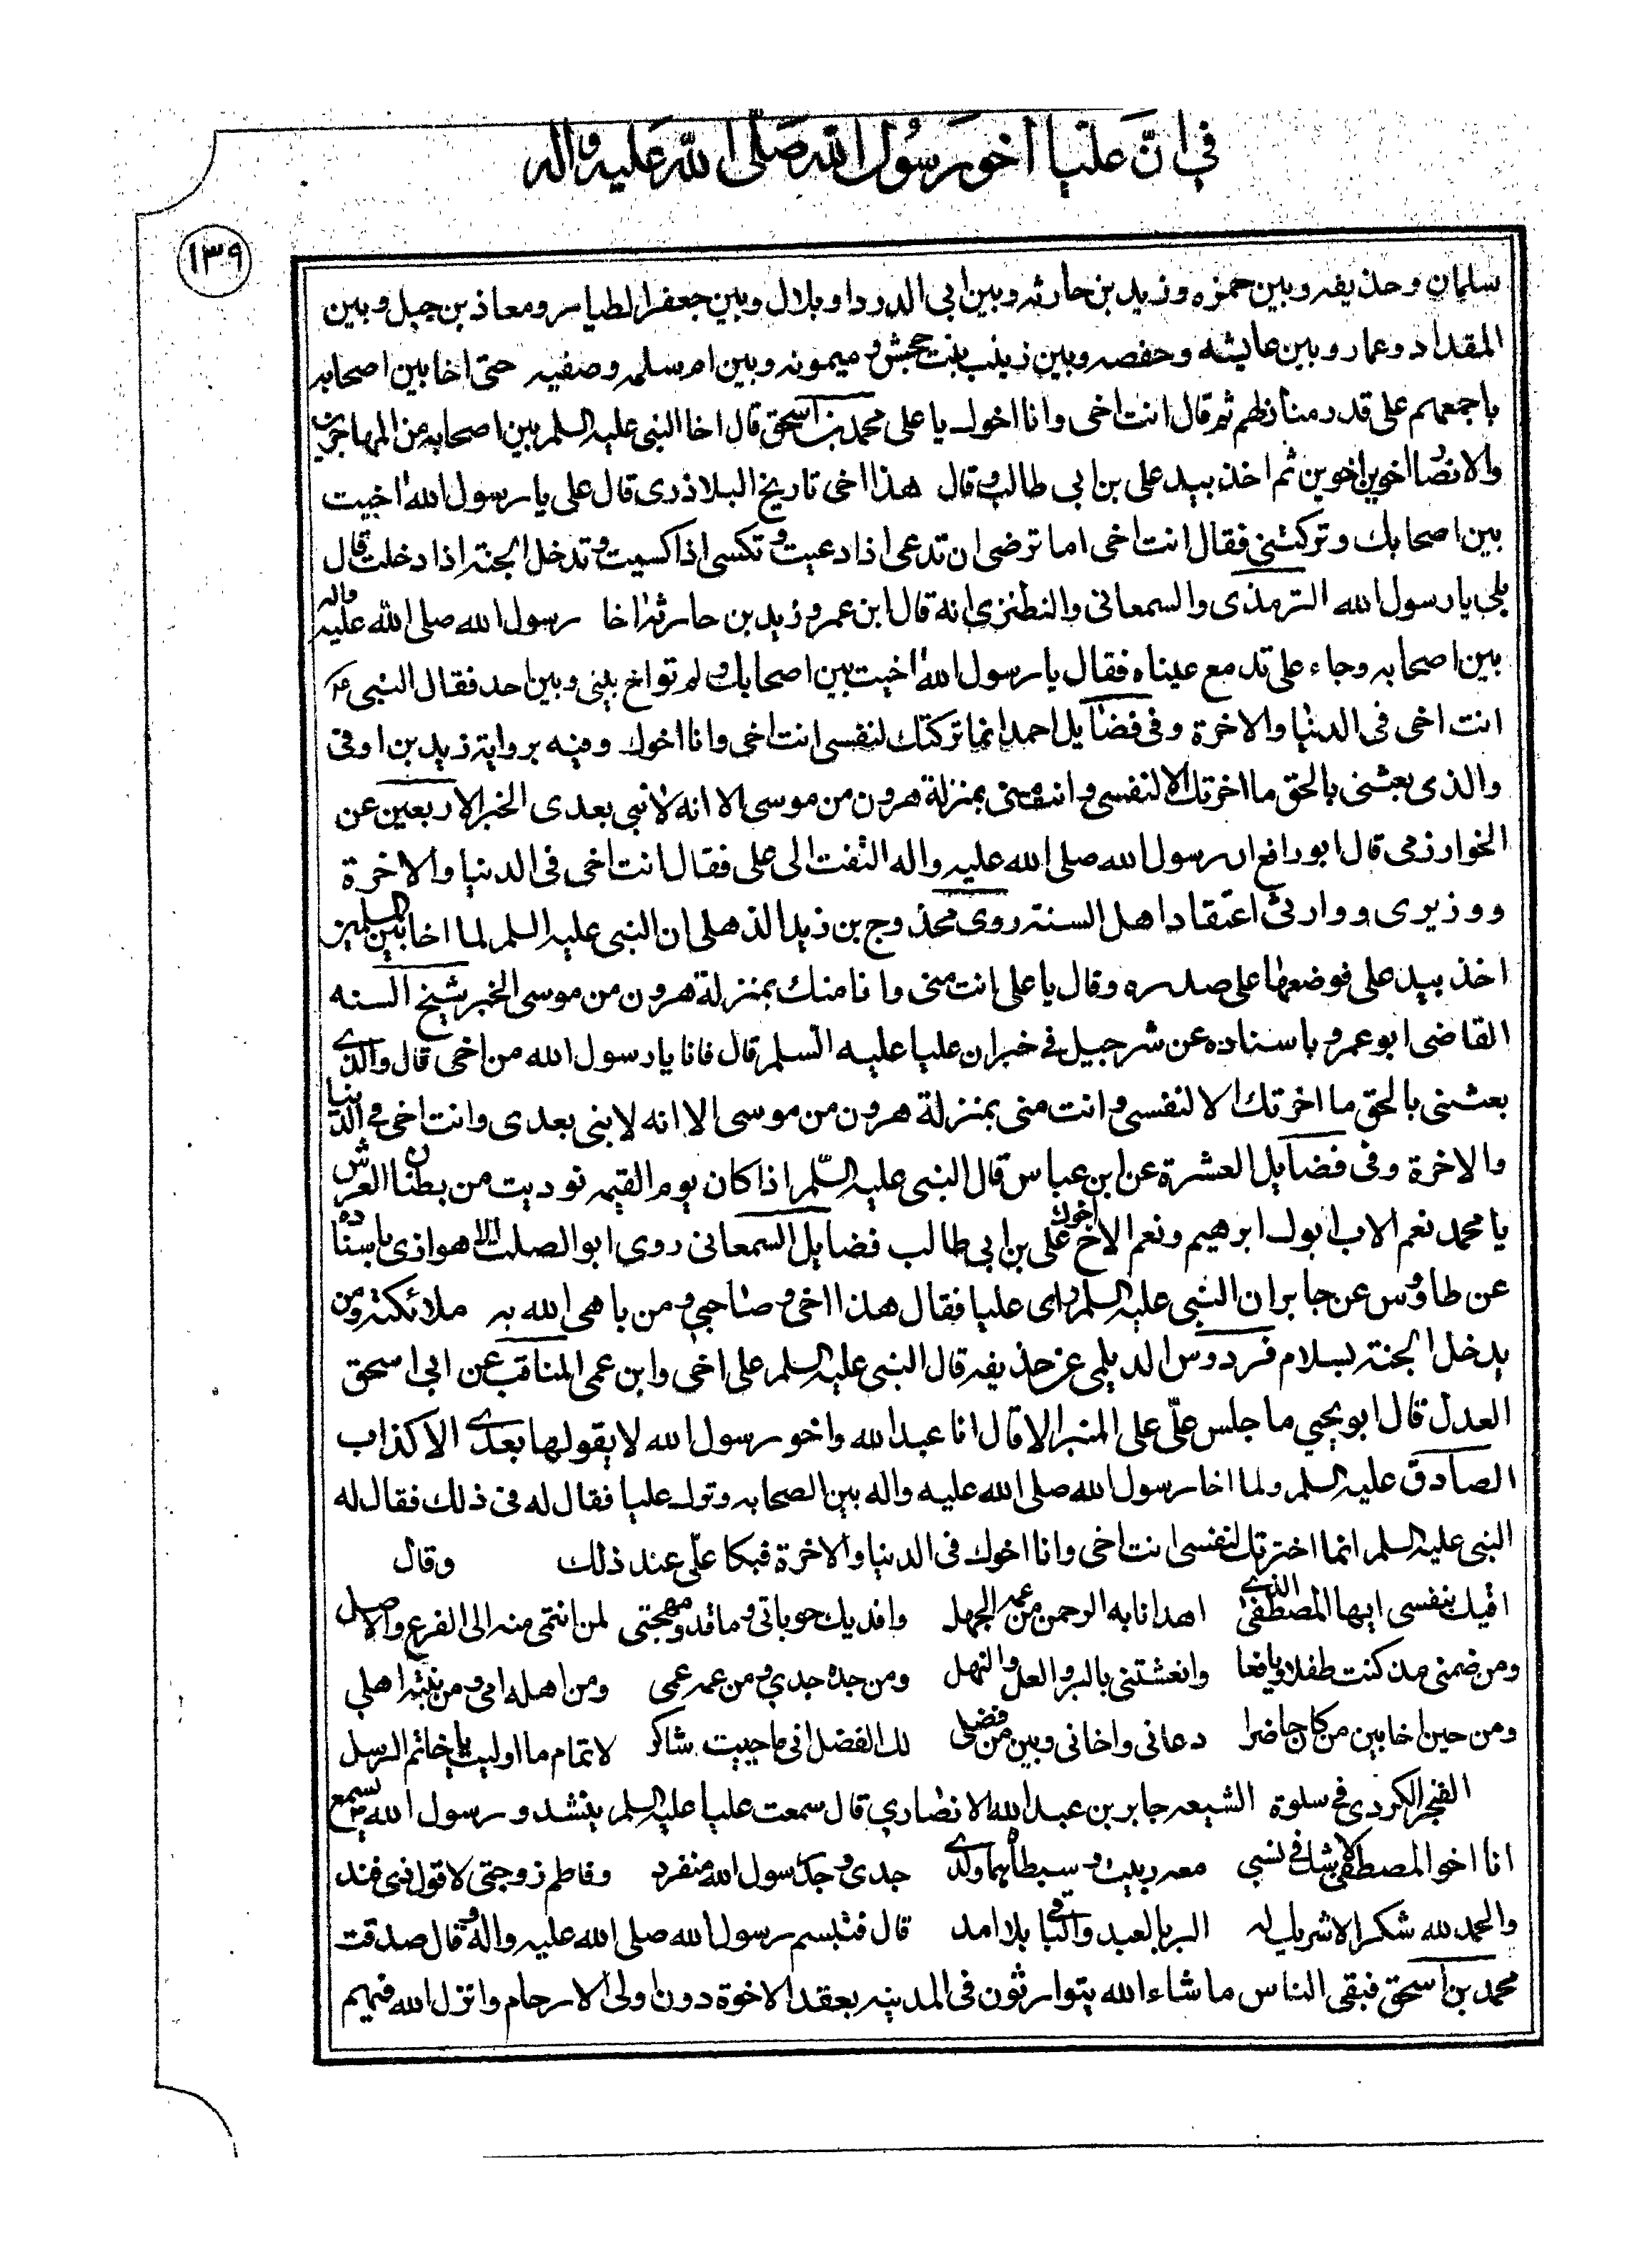 في ان عليا اخو رسول الله صلى الله عليه واله
١٣٩
سلمان وحذيفه وبين حمزه وزيد بن حارثه وبين ابى الدردا وبلال وبين جعفر الطيار ومعاذ بن جبل وبين
المقداد وعمار وبين عايشه وحفصه وبين زينب بنت جحش وميمونه وبين ام سلمه وصفيه حتى اخا بين اصحابه
باجمعهم على قدر منازلهم ثم قال انت اخى وانا اخوك يا على محمد بن اسحق قال اخا النبى عليه السلم بين اصحابه من المهاجرين
والانصار اخوين اخوين ثم اخذ بيد على بن ابى طالب وقال هذا اخى تاريخ البلاذرى قال على يا رسول الله اخيت
بين اصحابك وتركتنى فقال انت اخى اما ترضى ان تدعى اذا دعيت وتكسى اذا كسيت وتدخل الجنة اذا دخلت قال
بلى يا رسول الله الترمذى والسمعانى والنطنزى انه قال ابن عمر وزيد بن حارثه اخا رسول الله صلى الله عليه واله
بين اصحابه وجاء على تدمع عيناه فقال يا رسول الله اخيت بين اصحابك ولم تواخ بينى وبين احد فقال النبى ع
انت اخى فى الدنيا والاخرة وفى فضايل احمد انما تركتك لنفسى انت اخى وانا اخوك وفيه برواية زيد بن اوفى
والذى بعثنى بالحق ما اخرتك الا لنفسى وانت منى بمنزلة هرون من موسى الا انه لا نبى بعدى الخبر الاربعين عن
الخوارزمى قال ابو رافع ان رسول الله صلى الله عليه واله التفت الى على فقال انت اخى فى الدنيا والاخرة
ووزيرى ووارثى اعتقاد اهل السنة روى مخدوج بن زيد الذهلى ان النبى عليه السلم لما اخا بين المسلمين
اخذ بيد على فوضعها على صدره وقال يا على انت منى وانا منك بمنزلة هرون من موسى الخبر شيخ السنه
القاضى ابو عمرو باسناده عن شرحبيل في خبر ان عليا عليه السلم قال فانا يا رسول الله من اخى قال والذى
بعثنى بالحق ما اخرتك الا لنفسى وانت منى بمنزلة هرون من موسى الا انه لا نبى بعدى وانت اخى في الدنيا
والاخرة وفى فضايل العشرة عن ابن عباس قال النبى عليه السلم اذا كان يوم القيمه نوديت من بطنان العرش
يا محمد نعم الاب ابوك ابرهيم ونعم الاخ اخوك على بن ابى طالب فضايل السمعانى روى ابو الصلت الاهوازى باسناده
عن طاوس عن جابر ان النبى عليه السلم راى عليا فقال هذا اخى وصاحبى ومن باهى الله به ملائكته ومن
يدخل الجنة بسلام فردوس الديلمى عن حذيفه قال النبى عليه السلم على اخى وابن عمى المناقب عن ابى اسحق
العدل قال ابو يحيى ما جلس على على المنبر الا قال انا عبد الله واخو رسول الله لا يقولها بعدى الا كذاب
الصادق عليه السلم ولما اخا رسول الله صلى الله عليه واله بين الصحابه وترك عليا فقال له فى ذلك فقال له
النبى عليه السلم انما اخترتك لنفسى انت اخى وانا اخوك فى الدنيا والاخرة فبكا على عند ذلك وقال
اقيك بنفسى ايها المصطفى الذى اهدانا به الرحمن من عمه الجهل وافديك حوباتى وما قدر مهجتى لمن انتمى منه الى الفرع والاصل
ومن ضمنى مذ كنت طفلا ويافعا وانعشنى بالبر والعل والنهل ومن جده جدى ومن عمه عمى ومن اهله امى ومن بنته اهلى
ومن حين اخا بين من كان حاضرا دعانى واخانى وبين من فضلى لك الفضل انى ما حييت شاكر لاتمام ما اوليت يا خاتم الرسل
الفنجكردى في سلوة الشيعه جابر بن عبد الله الانصارى قال سمعت عليا عليه السلم ينشد ورسول الله يسمع
انا اخو المصطفى لا شك في نسبى معه ربيت وسبطاه هما ولدى جدى وجد رسول الله منفرد وفاطم زوجتى لا قول ذى فند
والحمد لله شكرا لا شريك له البر بالعبد والباقى بلا امد قال فتبسم رسول الله صلى الله عليه واله وقال صدقت
محمد بن اسحق فبقى الناس ما شاء الله يتوارثون فى المدينه بعقد الاخوة دون اولى الارحام وانزل الله فيهم